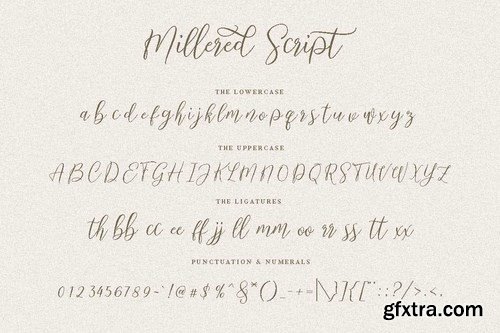 Millered Script
THE LOWERCASE
a b c d e f g h i j k l m n o p q r s t u v w x y z
THE UPPERCASE
A B C D E F G H I J K L M N O P Q R S T U V W X Y Z
THE LIGATURES
th bb cc ee ff jj ll mm oo rr ss tt xx
PUNCTUATION & NUMERALS
0 1 2 3 4 5 6 7 8 9 - ` ! @ # $ % ^ & * ( ) _ - + = | \ } ] { [ " ¨ : ; ? / > . < ,
gfxtra.com